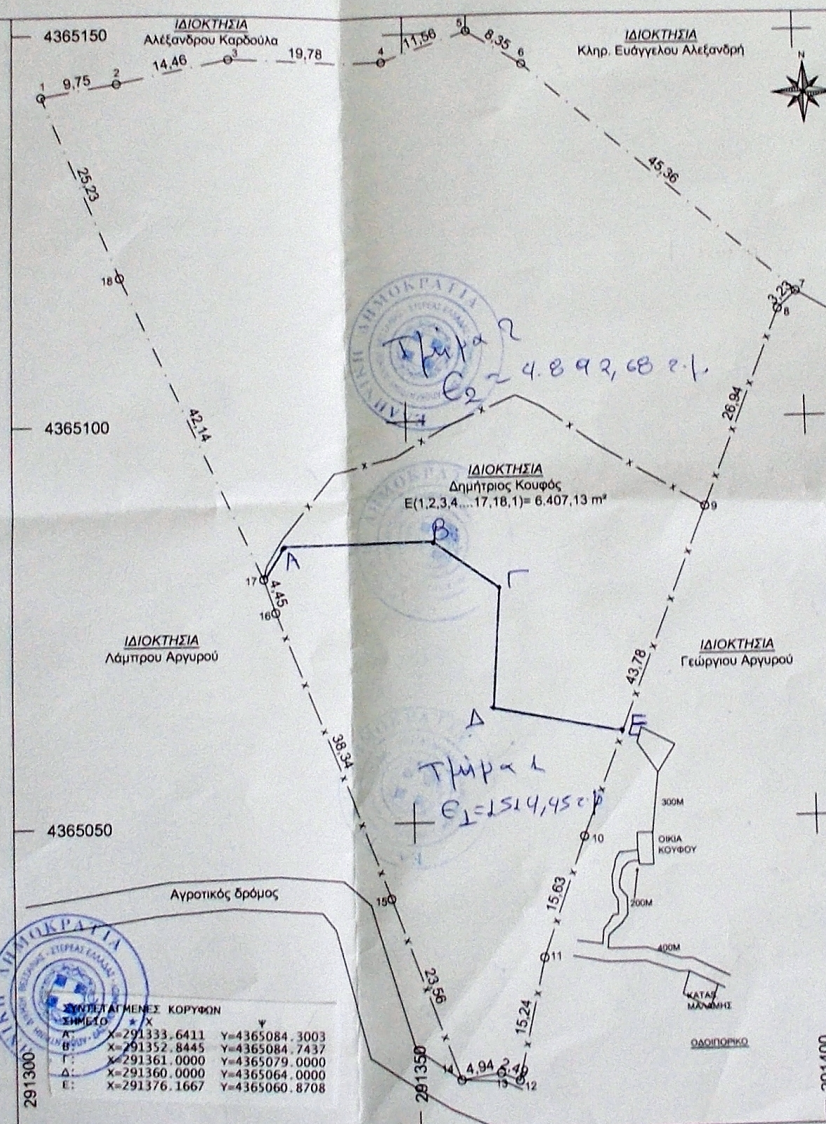 ΙΔΙΟΚΤΗΣΙΑ
Αλέξανδρου Καρδούλα
ΙΔΙΟΚΤΗΣΙΑ
Κληρ. Ευάγγελου Αλεξανδρή
4365150
1
9,75
2
14,46
3
19,78
4
11,56
5
8,35
6
N
45,36
25,23
18
3,23
7
8
ΔΗΜΟΚΡΑΤΙΑ
Τμήμα 2
Ε2 = 4.892,68 τ.μ.
26,94
42,14
4365100
ΙΔΙΟΚΤΗΣΙΑ
Δημήτριος Κουφός
Ε(1,2,3,4....17,18,1)= 6.407,13 m²
9
Α
Β
Γ
17
4,45
16
ΙΔΙΟΚΤΗΣΙΑ
Λάμπρου Αργυρού
ΙΔΙΟΚΤΗΣΙΑ
Γεώργιου Αργυρού
43,78
Δ
Ε
38,34
Τμήμα 1
Ε1=1514,45 τ.μ
300Μ
4365050
10
ΟΙΚΙΑ
ΚΟΥΦΟΥ
Αγροτικός δρόμος
15
15,63
200Μ
11
400Μ
23,56
15,24
ΚΑΤΑΣ
ΜΑΛΑΜΗΣ
ΟΔΟΙΠΟΡΙΚΟ
ΔΗΜΟΚΡΑΤΙΑ
ΣΥΝΤΕΤΑΓΜΕΝΕΣ ΚΟΡΥΦΩΝ
ΣΗΜΕΙΟ Χ Ψ
Α: X=291333.6411 Y=4365084.3003
Β: X=291352.8445 Y=4365084.7437
Γ: X=291361.0000 Y=4365079.0000
Δ: X=291360.0000 Y=4365064.0000
Ε: X=291376.1667 Y=4365060.8708
14
4,94
13
12
291300
291350
291400